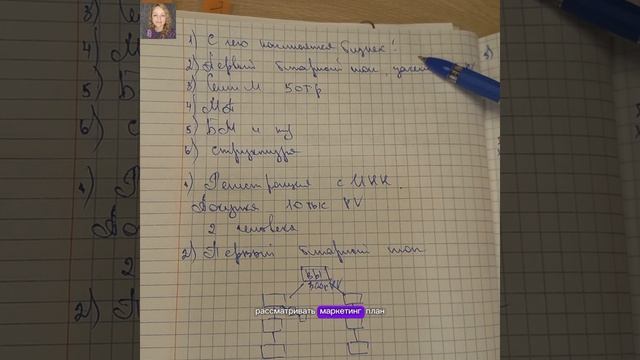 1) С чего начинается бизнес!
2) Первый бинарный шаг,
3) Семи М 50тр
4) МА
5) БМ и
6) структура
1) Регистрация с ИНН.
Покупка 10тыс PV
2 человека
2) Первый бинарный шаг
ВЫ
рассматривать маркетинг план